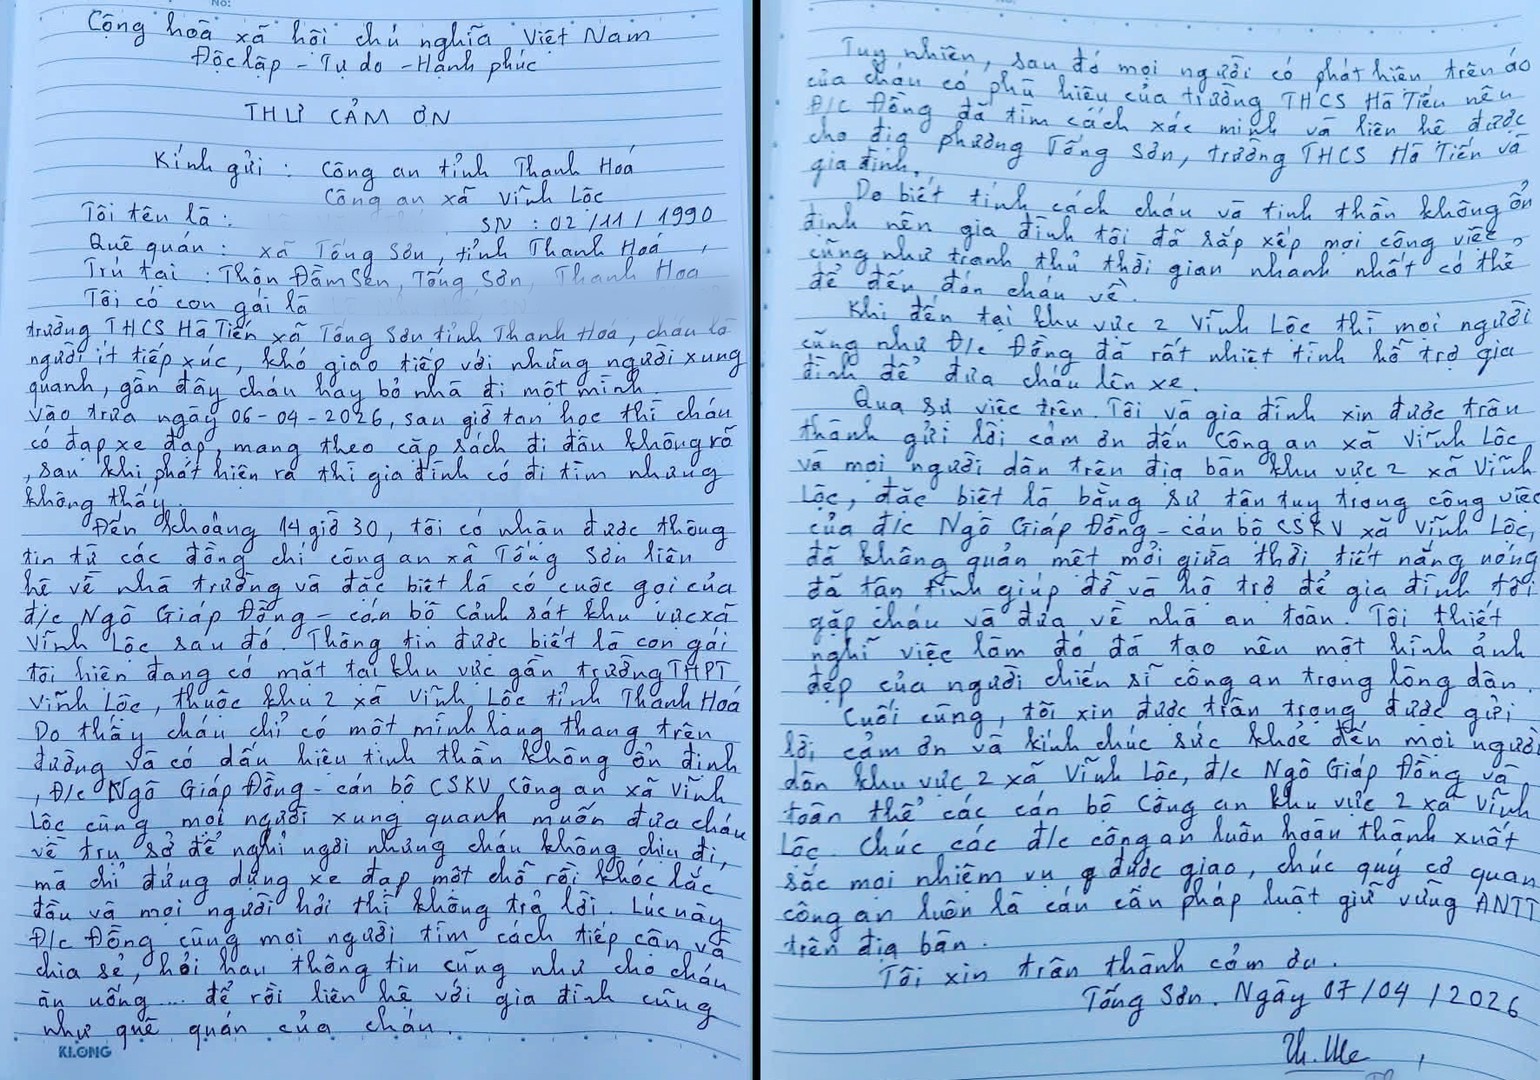 Cộng hoà xã hội chủ nghĩa Việt Nam
Độc lập - Tự do - Hạnh phúc
THƯ CẢM ƠN
Kính gửi : Công an tỉnh Thanh Hoá
Công an xã Vĩnh Lộc
Tôi tên là : SN : 02/11/1990
Quê quán : xã Tống Sơn, tỉnh Thanh Hoá,
Trú tại : Thôn Đầm Sen, Tống Sơn, Thanh Hoá
Tôi có con gái là
trường THCS Hà Tiến xã Tống Sơn tỉnh Thanh Hoá, cháu là
người ít tiếp xúc, khó giao tiếp với những người xung
quanh, gần đây cháu hay bỏ nhà đi một mình.
Vào trưa ngày 06-04-2026, sau giờ tan học thì cháu
có đạp xe đạp, mang theo cặp sách đi đâu không rõ
, sau khi phát hiện ra thì gia đình có đi tìm nhưng
không thấy.
Đến khoảng 14 giờ 30, tôi có nhận được thông
tin từ các đồng chí công an xã Tống Sơn liên
hệ về nhà trường và đặc biệt là có cuộc gọi của
đ/c Ngô Giáp Đồng - cán bộ Cảnh sát khu vực xã
Vĩnh Lộc sau đó. Thông tin được biết là con gái
tôi hiện đang có mặt tại khu vực gần trường THPT
Vĩnh Lộc, thuộc khu 2 xã Vĩnh Lộc tỉnh Thanh Hoá
Do thấy cháu chỉ có một mình lang thang trên
đường và có dấu hiệu tinh thần không ổn định
, Đ/c Ngô Giáp Đồng - cán bộ CSKV Công an xã Vĩnh
Lộc cùng mọi người xung quanh muốn đưa cháu
về trụ sở để nghỉ ngơi nhưng cháu không chịu đi,
mà chỉ đứng dựng xe đạp một chỗ rồi khóc lắc
đầu và mọi người hỏi thì không trả lời. Lúc này
Đ/c Đồng cùng mọi người tìm cách tiếp cận và
chia sẻ, hỏi han thông tin cũng như cho cháu
ăn uống ... để rồi liên hệ với gia đình cũng
như quê quán của cháu.
KLONG
Tuy nhiên, sau đó mọi người có phát hiện trên áo
của cháu có phù hiệu của trường THCS Hà Tiến nên
Đ/c Đồng đã tìm cách xác minh và liên hệ được
cho địa phương Tống Sơn, trường THCS Hà Tiến và
gia đình.
Do biết tính cách cháu và tinh thần không ổn
định nên gia đình tôi đã sắp xếp mọi công việc
cũng như tranh thủ thời gian nhanh nhất có thể
để đến đón cháu về.
Khi đến tại khu vực 2 Vĩnh Lộc thì mọi người
cũng như Đ/c Đồng đã rất nhiệt tình hỗ trợ gia
đình để đưa cháu lên xe.
Qua sự việc trên. Tôi và gia đình xin được trân
thành gửi lời cảm ơn đến Công an xã Vĩnh Lộc
và mọi người dân trên địa bàn khu vực 2 xã Vĩnh
Lộc, đặc biệt là bằng sự tận tuỵ trong công việc
của đ/c Ngô Giáp Đồng - cán bộ CSKV xã Vĩnh Lộc,
đã không quản mệt mỏi giữa thời tiết nắng nóng
đã tận tình giúp đỡ và hỗ trợ để gia đình tôi
gặp cháu và đưa về nhà an toàn. Tôi thiết
nghĩ việc làm đó đã tạo nên một hình ảnh
đẹp của người chiến sĩ công an trong lòng dân.
Cuối cùng, tôi xin được trân trọng được gửi
lời cảm ơn và kính chúc sức khoẻ đến mọi người
dân khu vực 2 xã Vĩnh Lộc, đ/c Ngô Giáp Đồng và
toàn thể các cán bộ Công an khu vực 2 xã Vĩnh
Lộc. Chúc các đ/c công an luôn hoàn thành xuất
sắc mọi nhiệm vụ được giao, chúc quý cơ quan
công an luôn là cán cân pháp luật giữ vững ANTT
trên địa bàn.
Tôi xin trân thành cảm ơn.
Tống Sơn. Ngày 07/04/2026